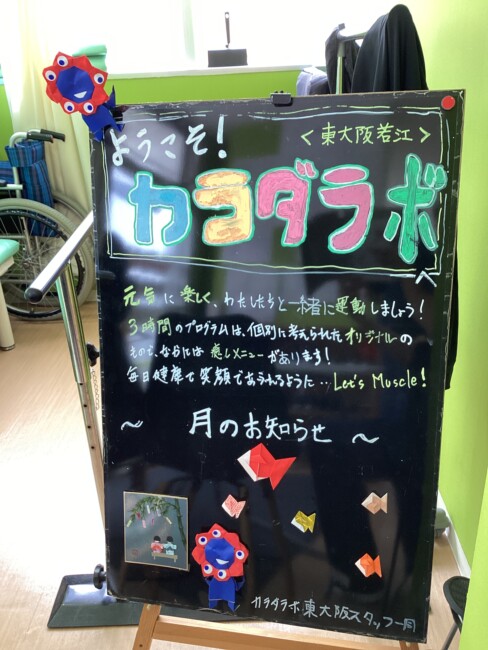 ようこそ!
<東大阪若江>
カラダラボ
へ
元気に楽しく、わたしたちと一緒に運動しましょう!
3時間のプログラムは、個別に考えられたオリジナルの
もので、なかには癒しメニューがあります!
毎日健康で笑顔であられるように…Let's Muscle!
~月のお知らせ~
カラダラボ東大阪スタッフ一同